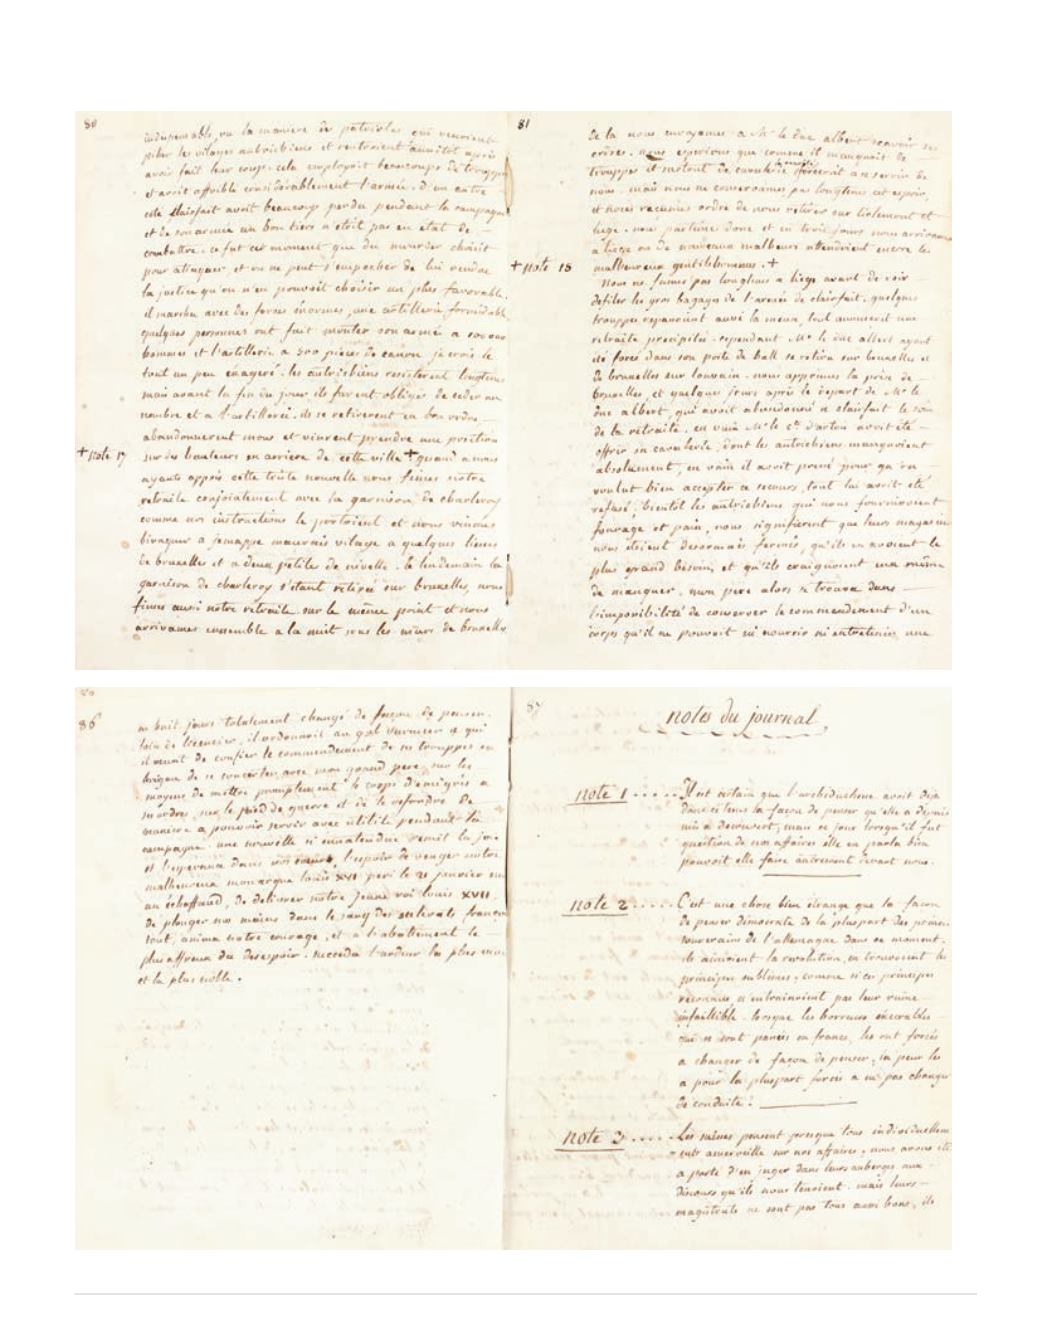 80
indispensable, vu la maniere des patriotes qui venoient
piller les vilages autrichiens et rentroient aussitôt après
avoir fait leur coup. cela employoit beaucoup de trouppes
et avoit affoibli considérablement l'armée. d'un autre
côté Clairfait avoit beaucoup perdu pendant la campagne
et de son armée un bon tiers n'etoit pas en état de
combattre. ce fut cet moment que du mourier choisit
pour attaquer, et on ne peut s'empecher de lui rendre
la justice qu'on n'en pouvoit choisir un plus favorable.
il marcha avec des forces énormes, une artillerie formidable
quelques personnes ont fait monter son armée a 100000
hommes et l'artillerie a 300 pièces de canon, je crois le
tout un peu exageré. les autrichiens resisterent longtems
mais avant la fin du jour ils furent obligés de ceder au
nombre et a l'artillerie. ils se retirerent en bon ordre,
abandonnerent mons et vinrent prendre une position
+ note 17 sur des hauteurs en arriere de cette ville + quand a nous
ayants appris cette triste nouvelle nous fimes notre
retraite conjointement avec la garnison de charleroy
comme nos instructions le portoient et nous vinmes
bivaquer a jemappe mauvais vilage a quelques lieues
de bruxelles et a deux petite de nivelle. le lendemain la
garnison de charleroy s'étant retirée sur bruxelles, nous
fimes aussi notre retraite sur le même point et nous
arrivames ensemble a la nuit sous les mûrs de bruxelles
81
de la nous envoyames a Mr le duc albert recevoir ses
ordres. nous esperions que comme il manquoit de
trouppes et surtout de cavalerie forceroit a se servir de
nous. mais nous ne conservames pas longtems cet espoir,
et nous recumes ordre de nous retirer sur tirlemont et
liege. nous partimes donc et en trois jours nous arrivames
a liege ou de nouveaux malheurs attendoient encore les
+ note 18 malheureux gentilshommes. +
Nous ne fumes pas longtems a liege avant de voir
defiler les gros bagages de l'armée de clairfait. quelques
trouppes repassoient aussi la meuse, tout annonçoit une
retraite precipitée. cependant Mr le duc albert ayant
été forcé dans son poste de hall se retira sur bruxelles et
de bruxelles sur louvain. nous apprimes la prise de
bruxelles, et quelques jours après le depart de Mr le
duc albert, qui avoit abandonné a clairfait le soin
de la retraite. en vain Mr le cte d'artois avoit été
offrir sa cavalerie, dont les autrichiens manquoient
absolument, en vain il avoit pressé pour qu'on
voulut bien accepter ce secours, tout lui avoit été
refusé. bientôt les autrichiens qui nous fournissoient
fourage et pain, nous signifierent que leurs magasins
nous étoient desormais fermés, qu'ils en avoient le
plus grand besoin, et qu'ils craignoient eux même
de manquer. mon pere alors se trouva dans
l'impossibilité de conserver le commandement d'un
corps qu'il ne pouvoit ni nourrir ni entretenir, une
86
en huit jours totalement changé de façon de penser.
loin de licencier, il ordonnoit au gal qui
il venoit de confier le commandement de ses trouppes en
brigau de se concerter avec mon grand pere sur les
moyens de mettre promptement le corps d'émigrés a
ses ordres, sur le pied de guerre et de le refondre de
maniere a pouvoir servir avec utilité pendant la
campagne. une nouvelle si inattendue remit la joie
et l'esperance dans nos cœurs, l'espoir de venger notre
malheureux monarque louis XVI peri le 21 janvier sur
un échaffaud, de delivrer notre jeune roi louis XVII
de plonger nos mains dans le sang des scelerats francois
tout, anima notre courage, et a l'abattement le
plus affreux du desespoir succeda l'ardeur la plus vive
et la plus noble.
87
notes du journal
note 1 ..... Il est certain que l'archiduchesse avoit deja
dans ce tems la façon de penser qu'elle a depuis
mis a decouvert, mais ce jour lorsqu'il fut
question de nos affaires elle en parla bien
pouvoit elle faire autrement devant nous.
note 2 ..... C'est une chose bien étrange que la façon
de penser démocrate de la pluspart des princes
souverains de l'allemagne dans ce moment.
ils aimoient la revolution, en trouvoient les
principes sublimes, comme si ces principes
reconnus, n'entrainoient pas leur ruine
infaillible. lorsque les horreurs éxecrables
qui se sont passées en france, les ont forcés
a changer de façon de penser, la peur les
a pour la pluspart forcés a ne pas changer
de conduite.
note 3 .... Les mêmes pensent presque tous individuellem
ent a merveille sur nos affaires. nous avons été
a porté d'en juger dans leurs auberges aux
discours qu'ils nous tenoient. mais leurs
magistrats ne sont pas tous aussi bons, ils